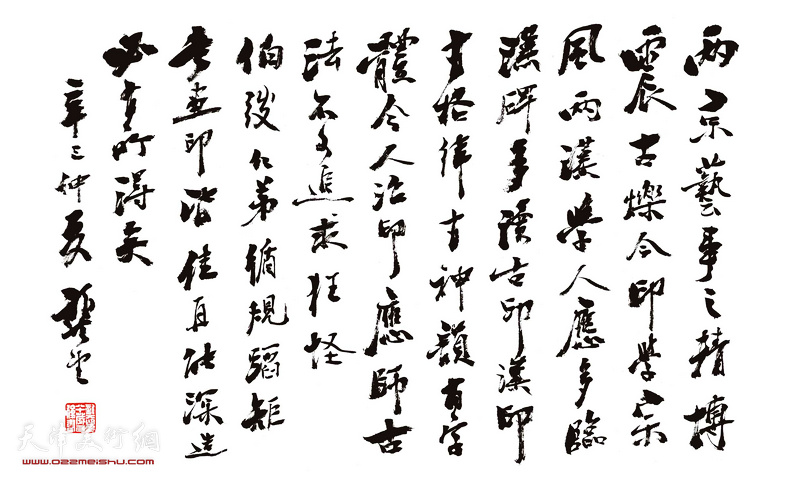 兩京藝事之精博
震古爍今印學宗
風兩漢學人應多臨
漢碑多讀古印漢印
有格律有神韻有字
體今人治印應師古
法不可追求狂怪
伯仁弟循規蹈矩
書畫印皆佳再能深造
必有所得矣
辛仲夏 龔望
天津美術網
www.022meishu.com